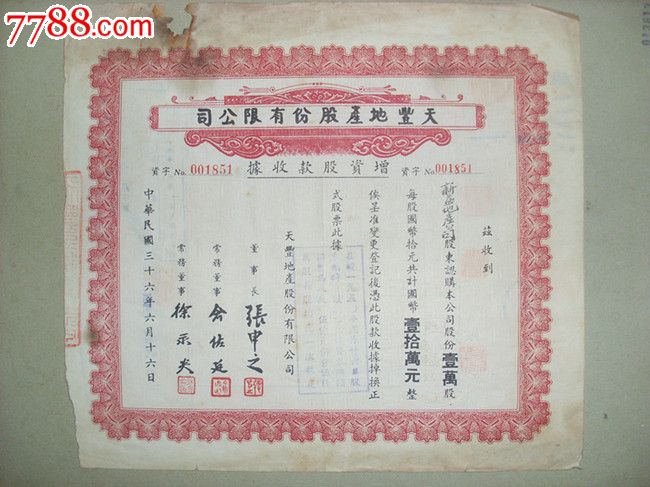 7788.com
天豐地產股份有限公司
增資股款收據
資字 No. 001851
資字 No. 001851
茲收到
股東認購本公司股份壹萬股
每股國幣拾元共計國幣壹拾萬元整
俟呈准變更登記後憑此股款收據掉換正
式股票此據
天豐地產股份有限公司
董事長 張申之
常務董事 俞佐廷
常務董事 徐
中華民國三十六年六月十六日